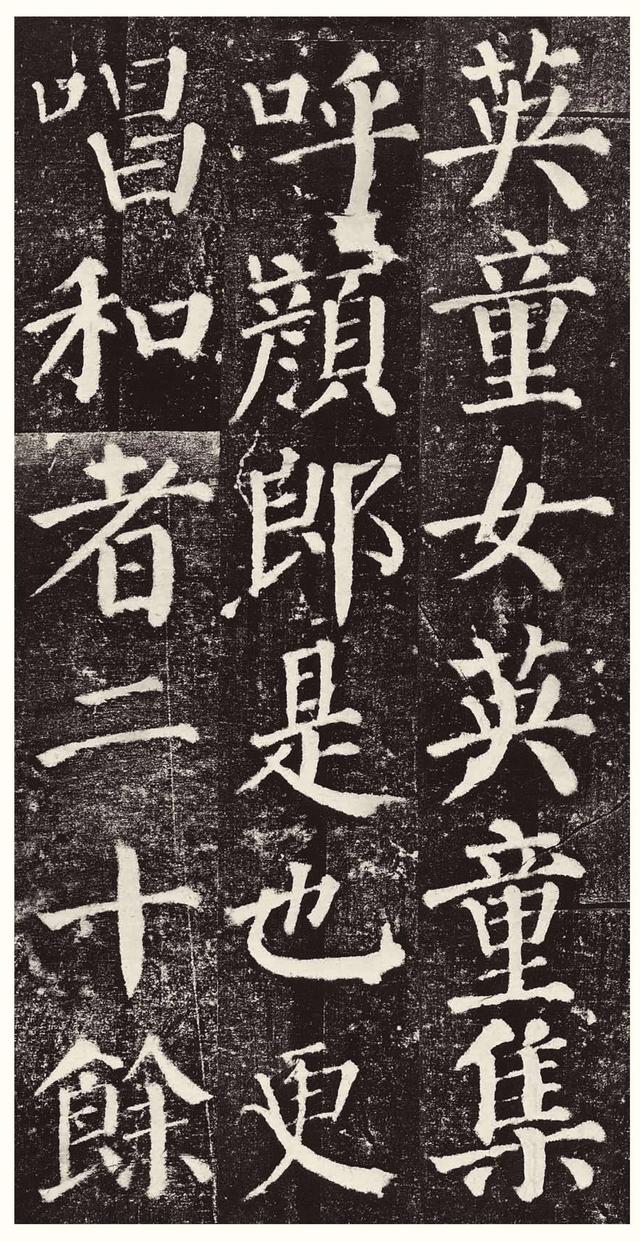 英童女英童集
呼顔郎是也更
唱和者二十餘